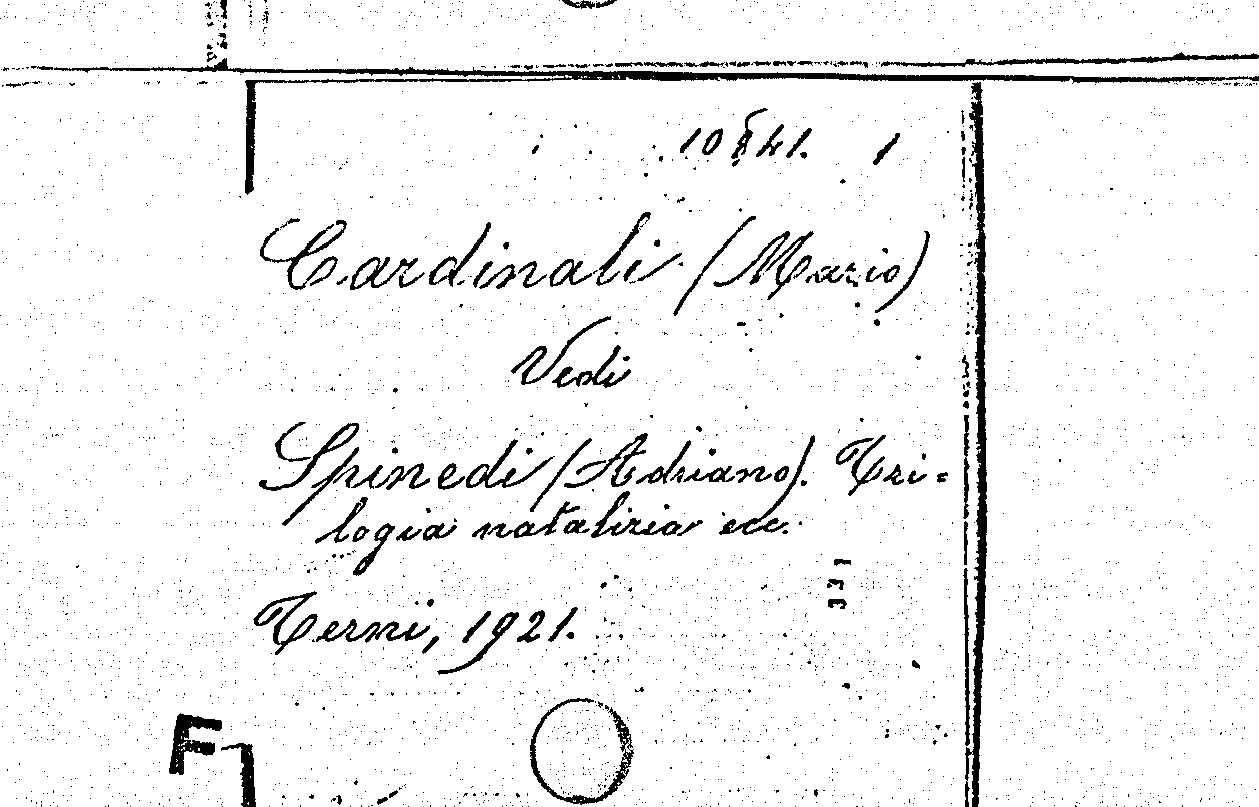 1
Cardinali (Mario)
Vedi
Spinedi (Adriano). Tri=
logia natalizia ecc.
331
Terni, 1921.